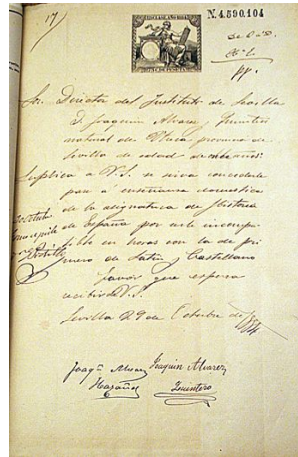 17
N.4.590.104
Sr. Director del Instituto de Sevilla
D. Joaquin Alvarez y Quintero
natural de Utrera, provincia de
Sevilla de edad de once años
Suplica a V.S. se sirva concederle
pase a enseñanza domestica
de la asignatura de Historia
de España por serle incompa
tible en horas con la de pri
mero de Latin y Castellano
favor que espera
recibir de V.S.
Sevilla 29 de Octubre de 1884
Joaqn Alvarez
Hazañas
Joaquin Alvarez
Quintero